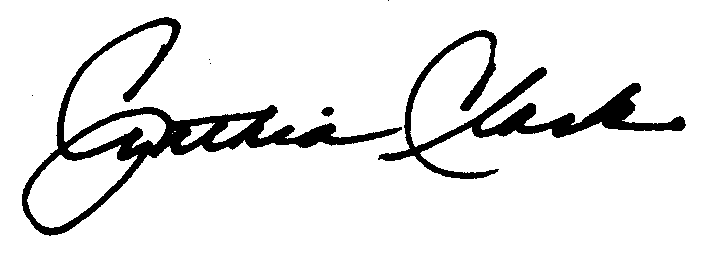 Cynthia Clark